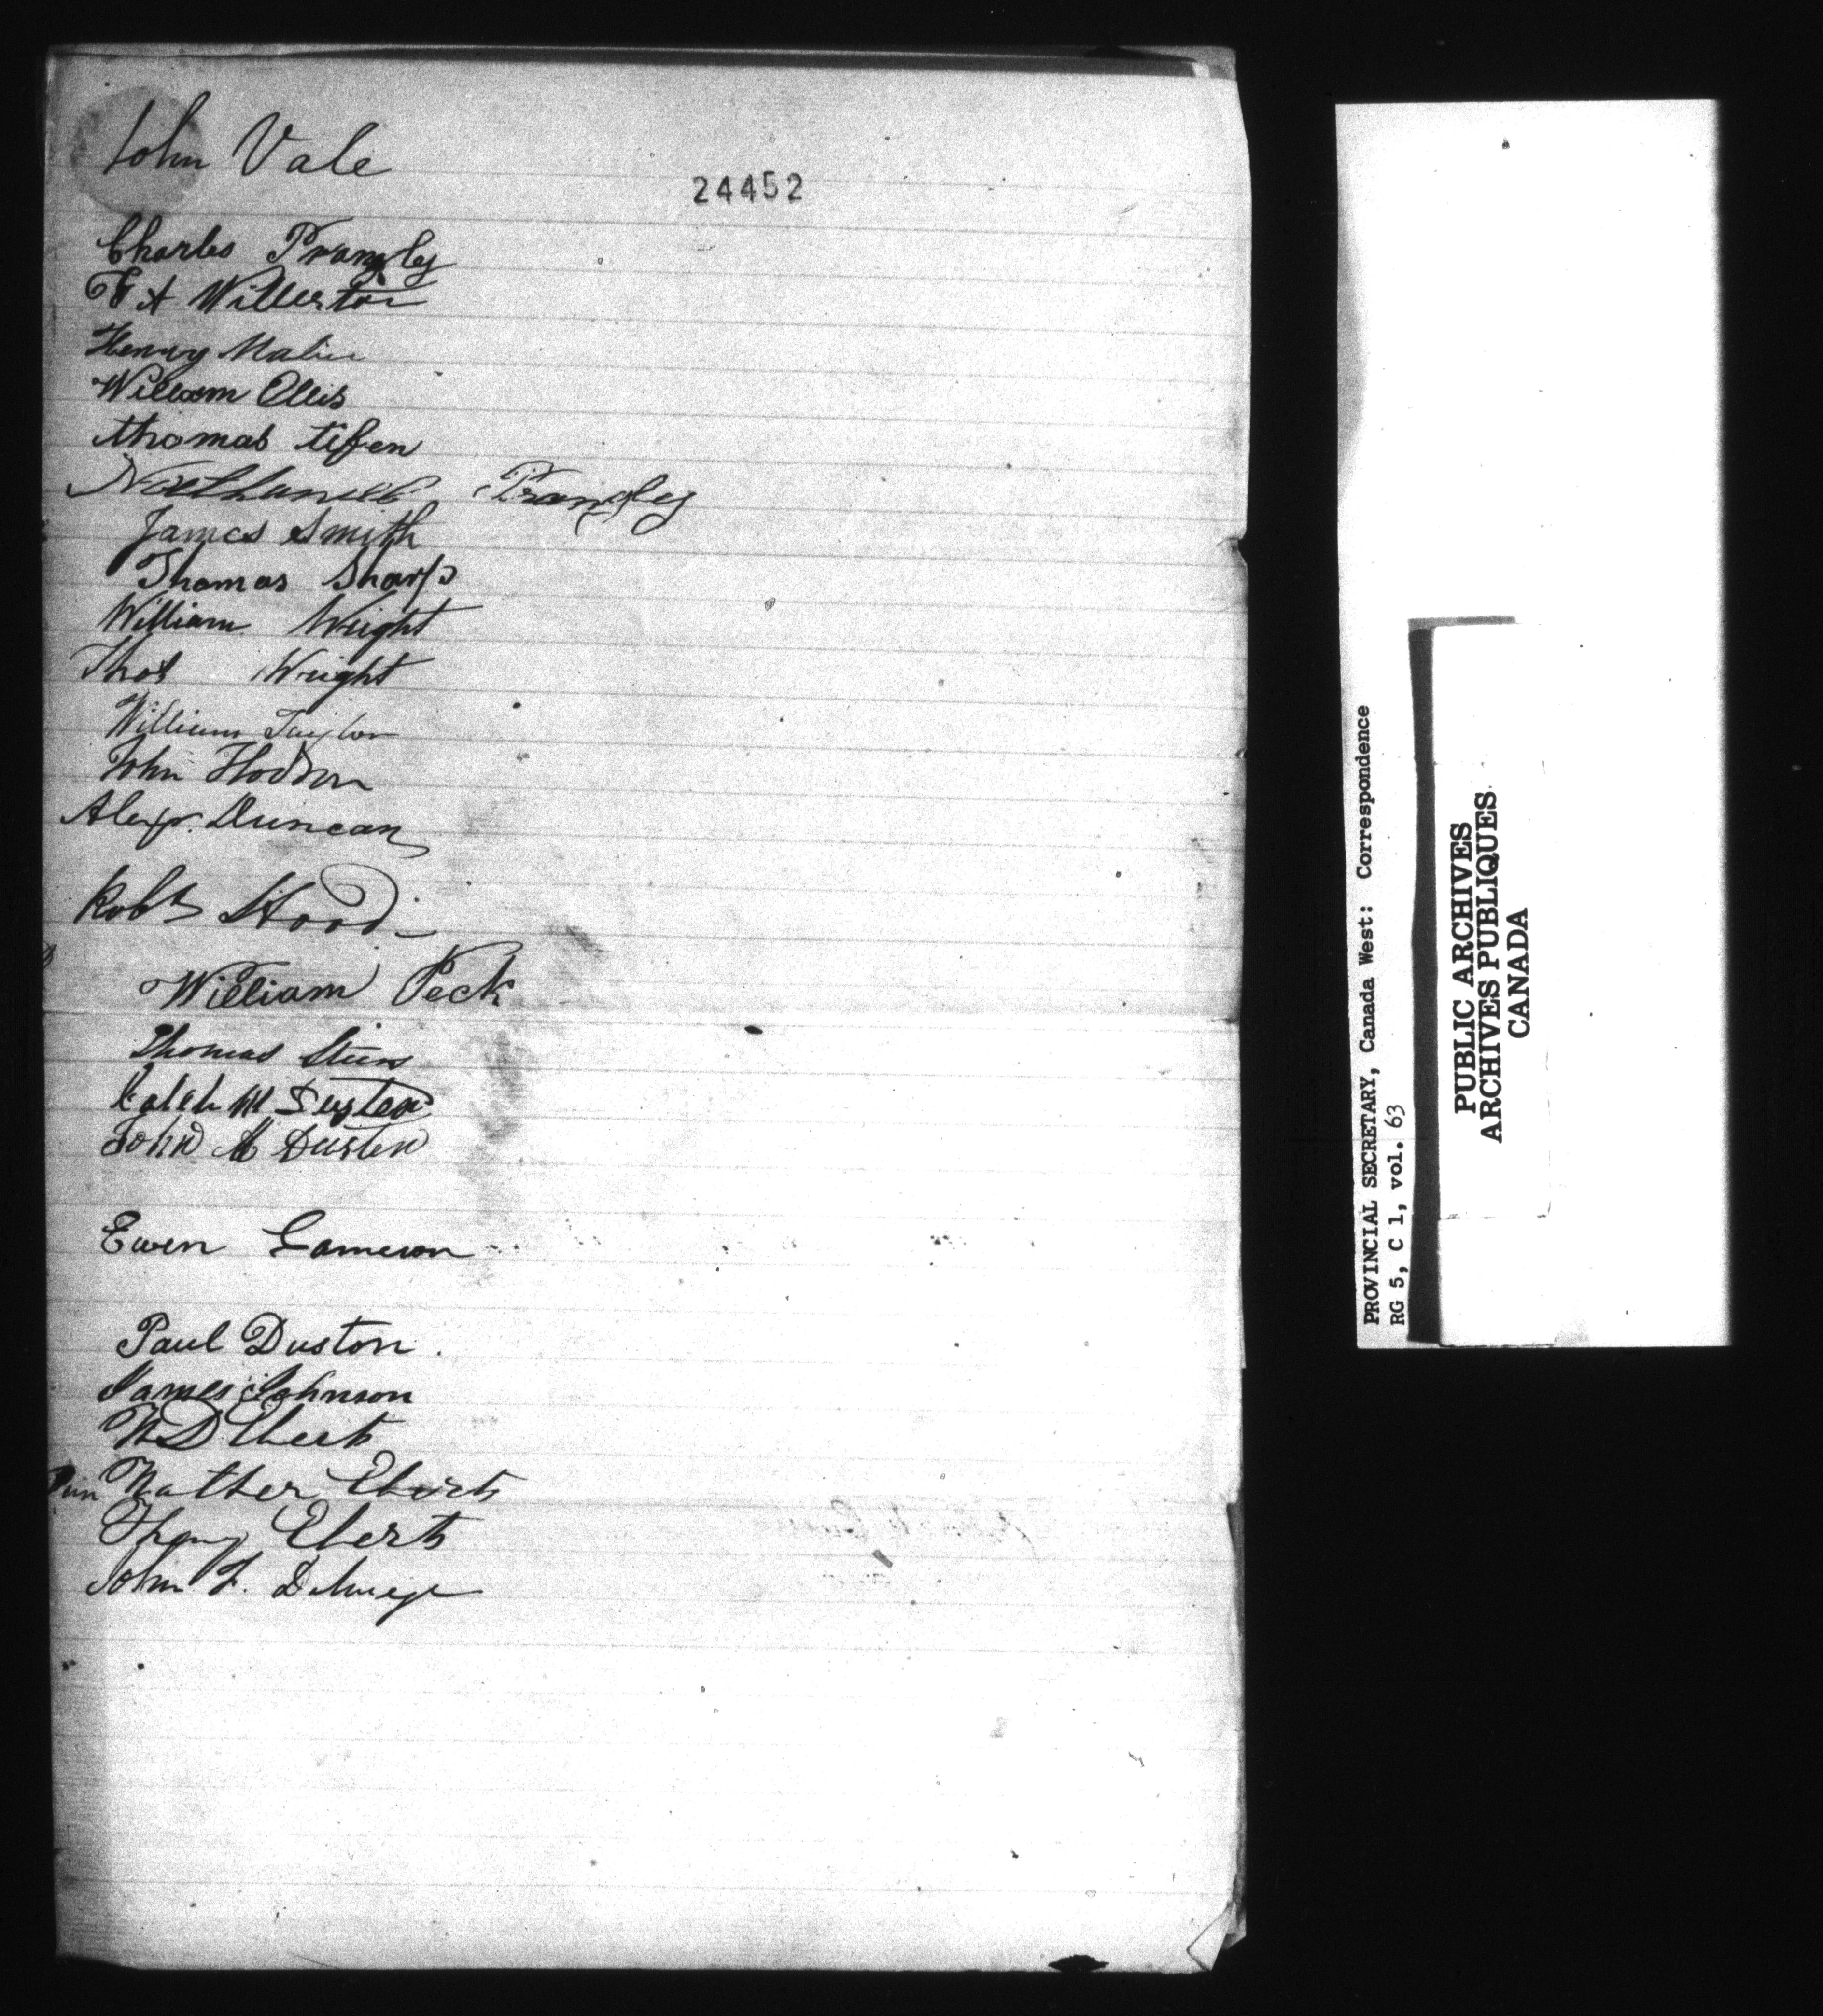 John Vale
24452
Charles Prangley
F A Willerton
Henry
William Ellis
thomas tiffen
Nathaniel Prangley
James Smith
Thomas Sharp
William Wright
Thos Wright
William Taylor
John Hodson
Alexr. Duncan
Robt Hood
William Peck
Thomas
Caleb M Dusten
John M Dusten
Ewen Cameron
Paul Duston.
James Johnson
W D Eberts
Walther Eberts
Eberts
John F. Delmege
PROVINCIAL SECRETARY, Canada West: Correspondence
RG 5, C 1, vol. 63
PUBLIC ARCHIVES
ARCHIVES PUBLIQUES
CANADA